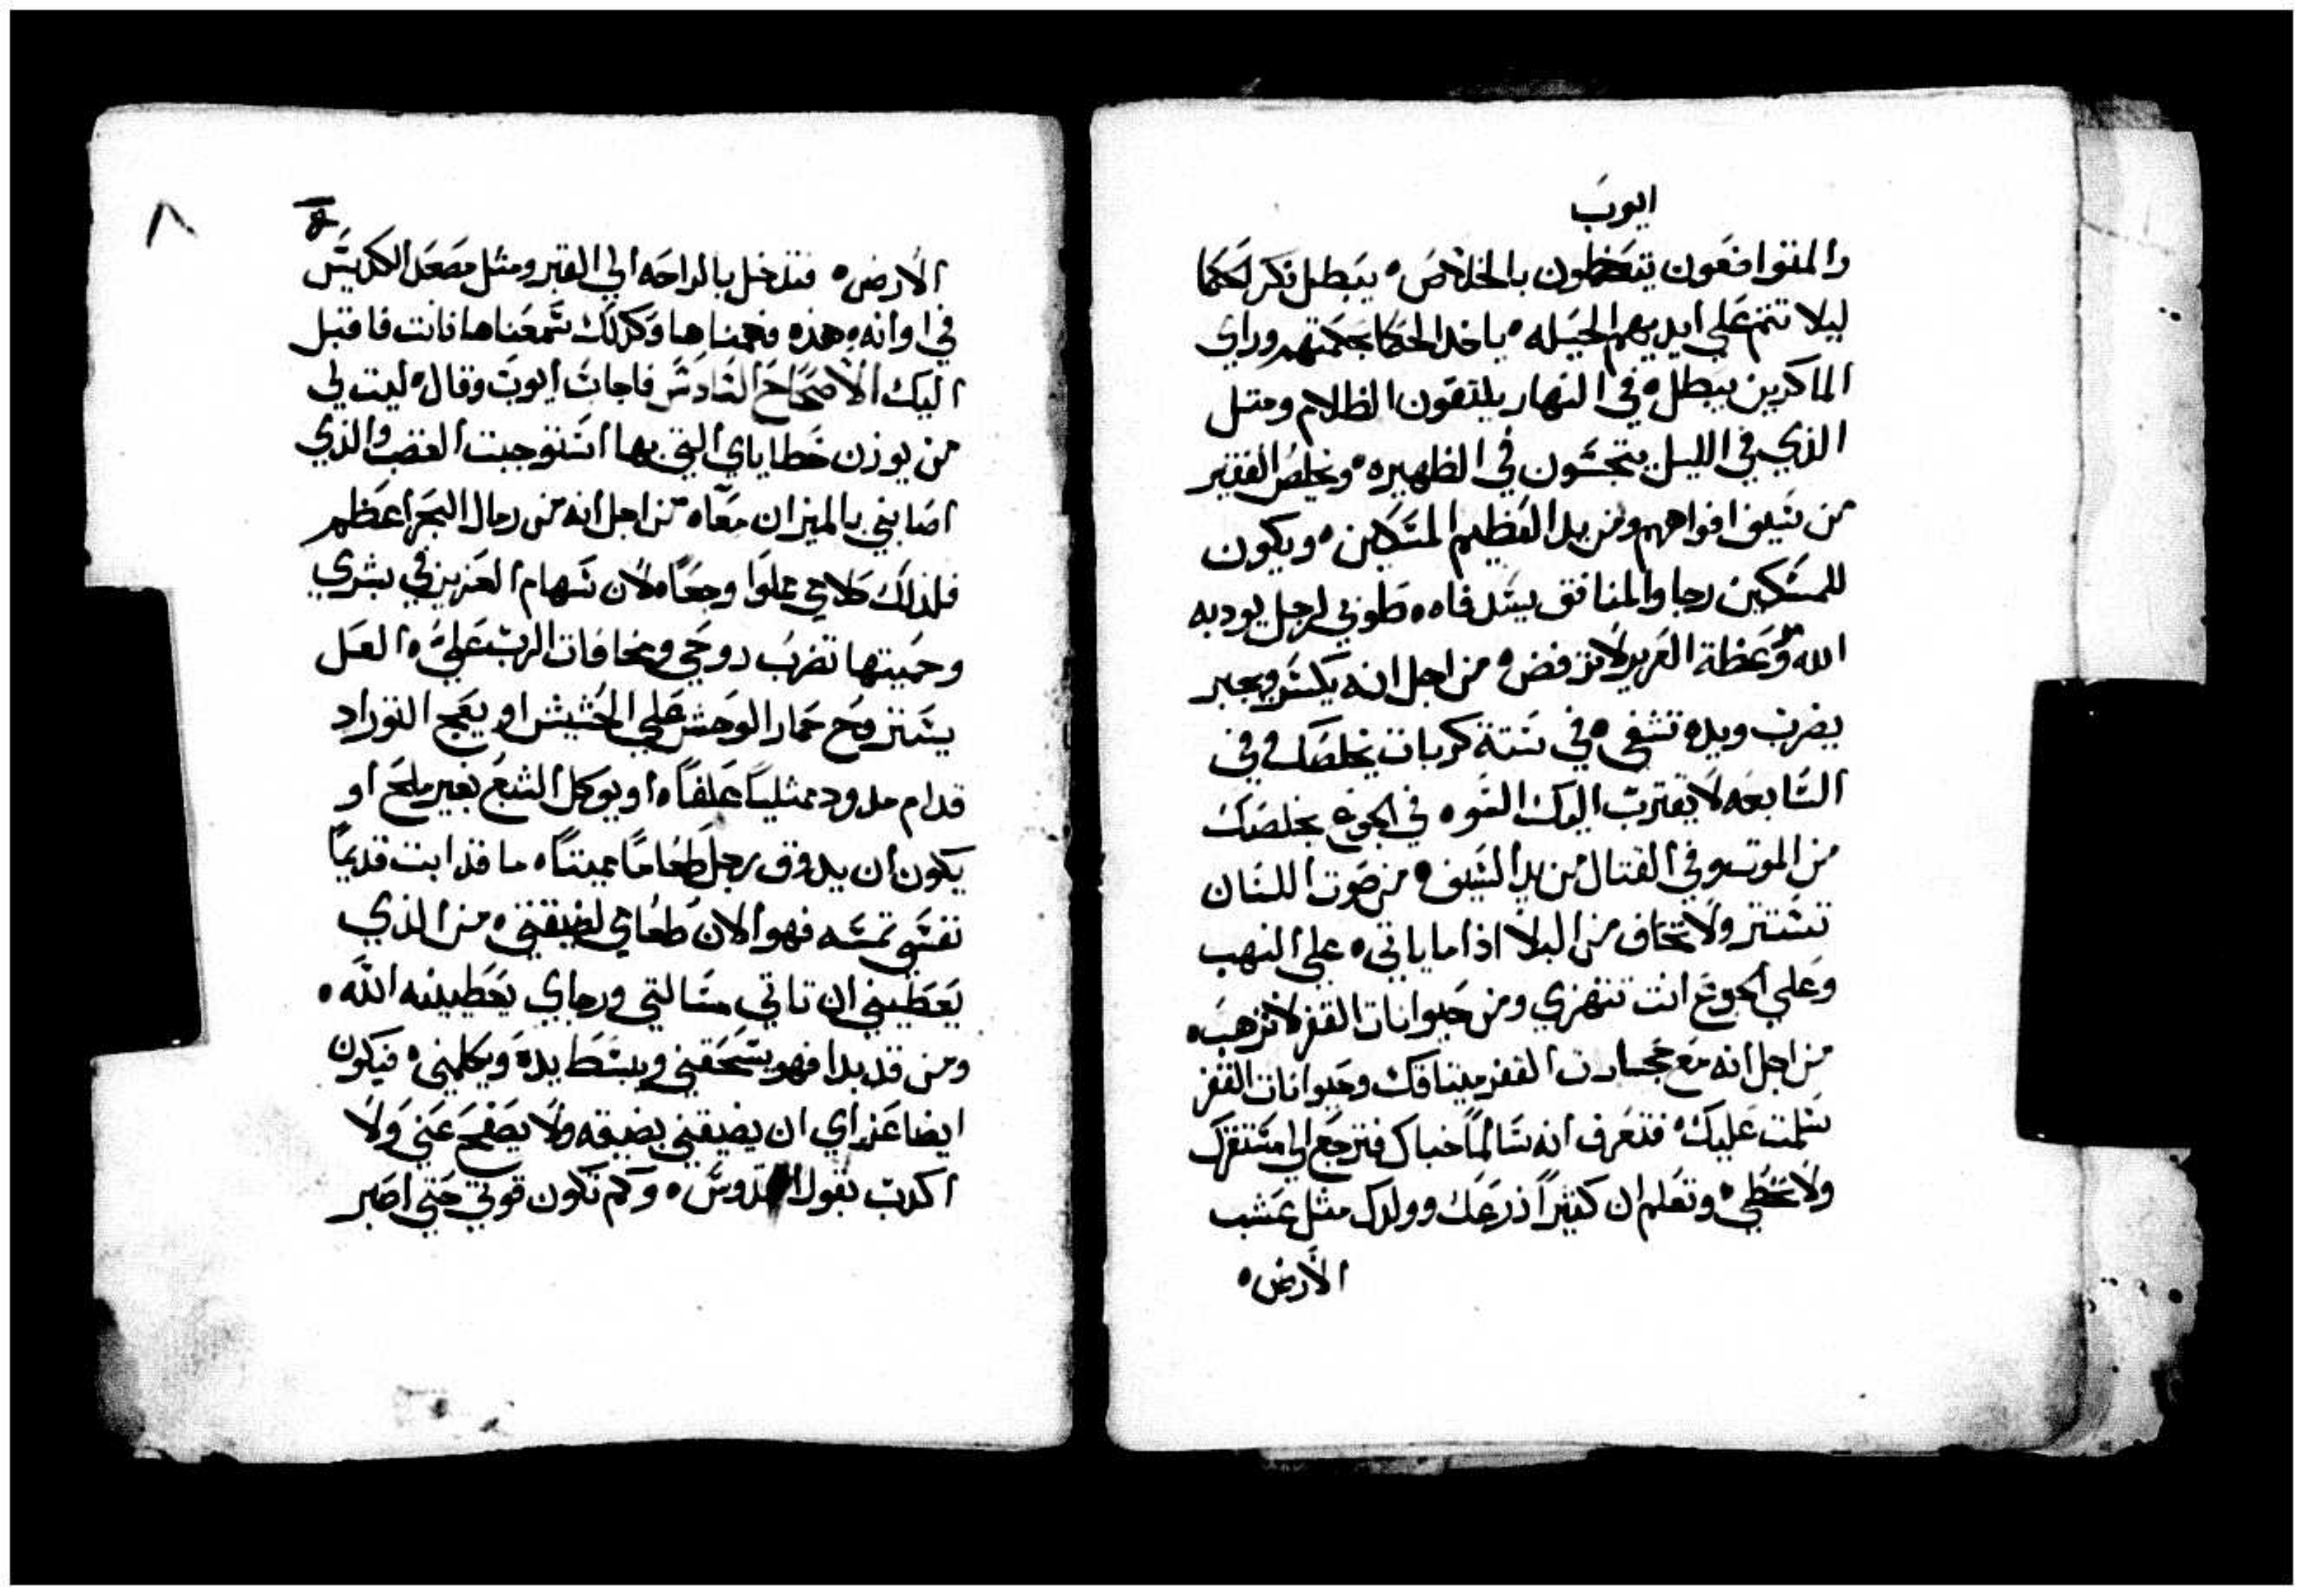 ايوب
والمتواضعون يتعظمون بالخلاص ه يبطل فكر الحكما
ليلا تتم علي ايديهم الحيله ه ياخد الحكما بحكمتهم وراي
الماكرين يبطل ه في النهار يلتقون الظلام ومتل
الذي في الليل يتجسون في الظهيره ه ويخلص الفقير
من سيف افواههم ومن يد العظيم المسكين ه ويكون
للمسكين رجا والمنافق يسد فاه ه طوبي لرجل يودبه
الله وعظة العزيز لا ترفض ه من اجل انه يكسر ويجبر
يضرب ويده تشفي ه في ستة كربات يخلصك وفي
السابعه لا يقترب اليك السو ه في الجوع يخلصك
من الموت وفي القتال من يد السيف ه من صوت اللسان
تستتر ولا تخاف من البلا اذا ما ياتي ه علي النهب
وعلي الجوع انت تتهزي ومن حيوانات القفر لا ترهب ه
من اجل انه مع حجارت القفر ميتاقك وحيوانات القفر
سلمت عليك ه فتعرف انه سالماً خباك فترجع الي مستقرك
ولا تخطي ه وتعلم ان كثيراً ذرعك وولدك مثل عشب
الارض ه
٨
الارض ه فتدخل بالراحه الي القبر ومثل مصعد الكديس
في اوانه ه هذه فحصناها وكذلك سمعناها فانت فاقبل
اليك الاصحاح السادس فاجاب ايوب وقال ه ليت لي
من يوزن خطاياي التي بها استوجبت الغضب والذي
اصابني بالميزان معاً ه من اجل انه من رمال البحر اعظم
فلذلك كلامي مملوا وجعاً ه لان سهام العزيز في بشري
وحميتها تضرب روحي ومخافات الرب علي ه العل
يستروح حمار الوحش علي الحشيش او يعج التور اد
قدام مدود ممتلياً علفاً ه او يوكل الشع بغير ملح او
يكون ان يدوق رجل طعاماً ميتاً ه ما قد ابت قديماً
نفسي تمسه فهو الان طعامي لضيقتي ه من الذي
يعطيني ان تاتي مسالتي ورجاي يعطينيه الله ه
ومن قد بدا فهو يسحقني ويبسط يده ويكلمني ه فيكون
ايضا عزراي ان يضيقني بضيقه ولا يصفح عني ولا
اكدب بقول القدوس ه وكم تكون قوتي حتي اصبر